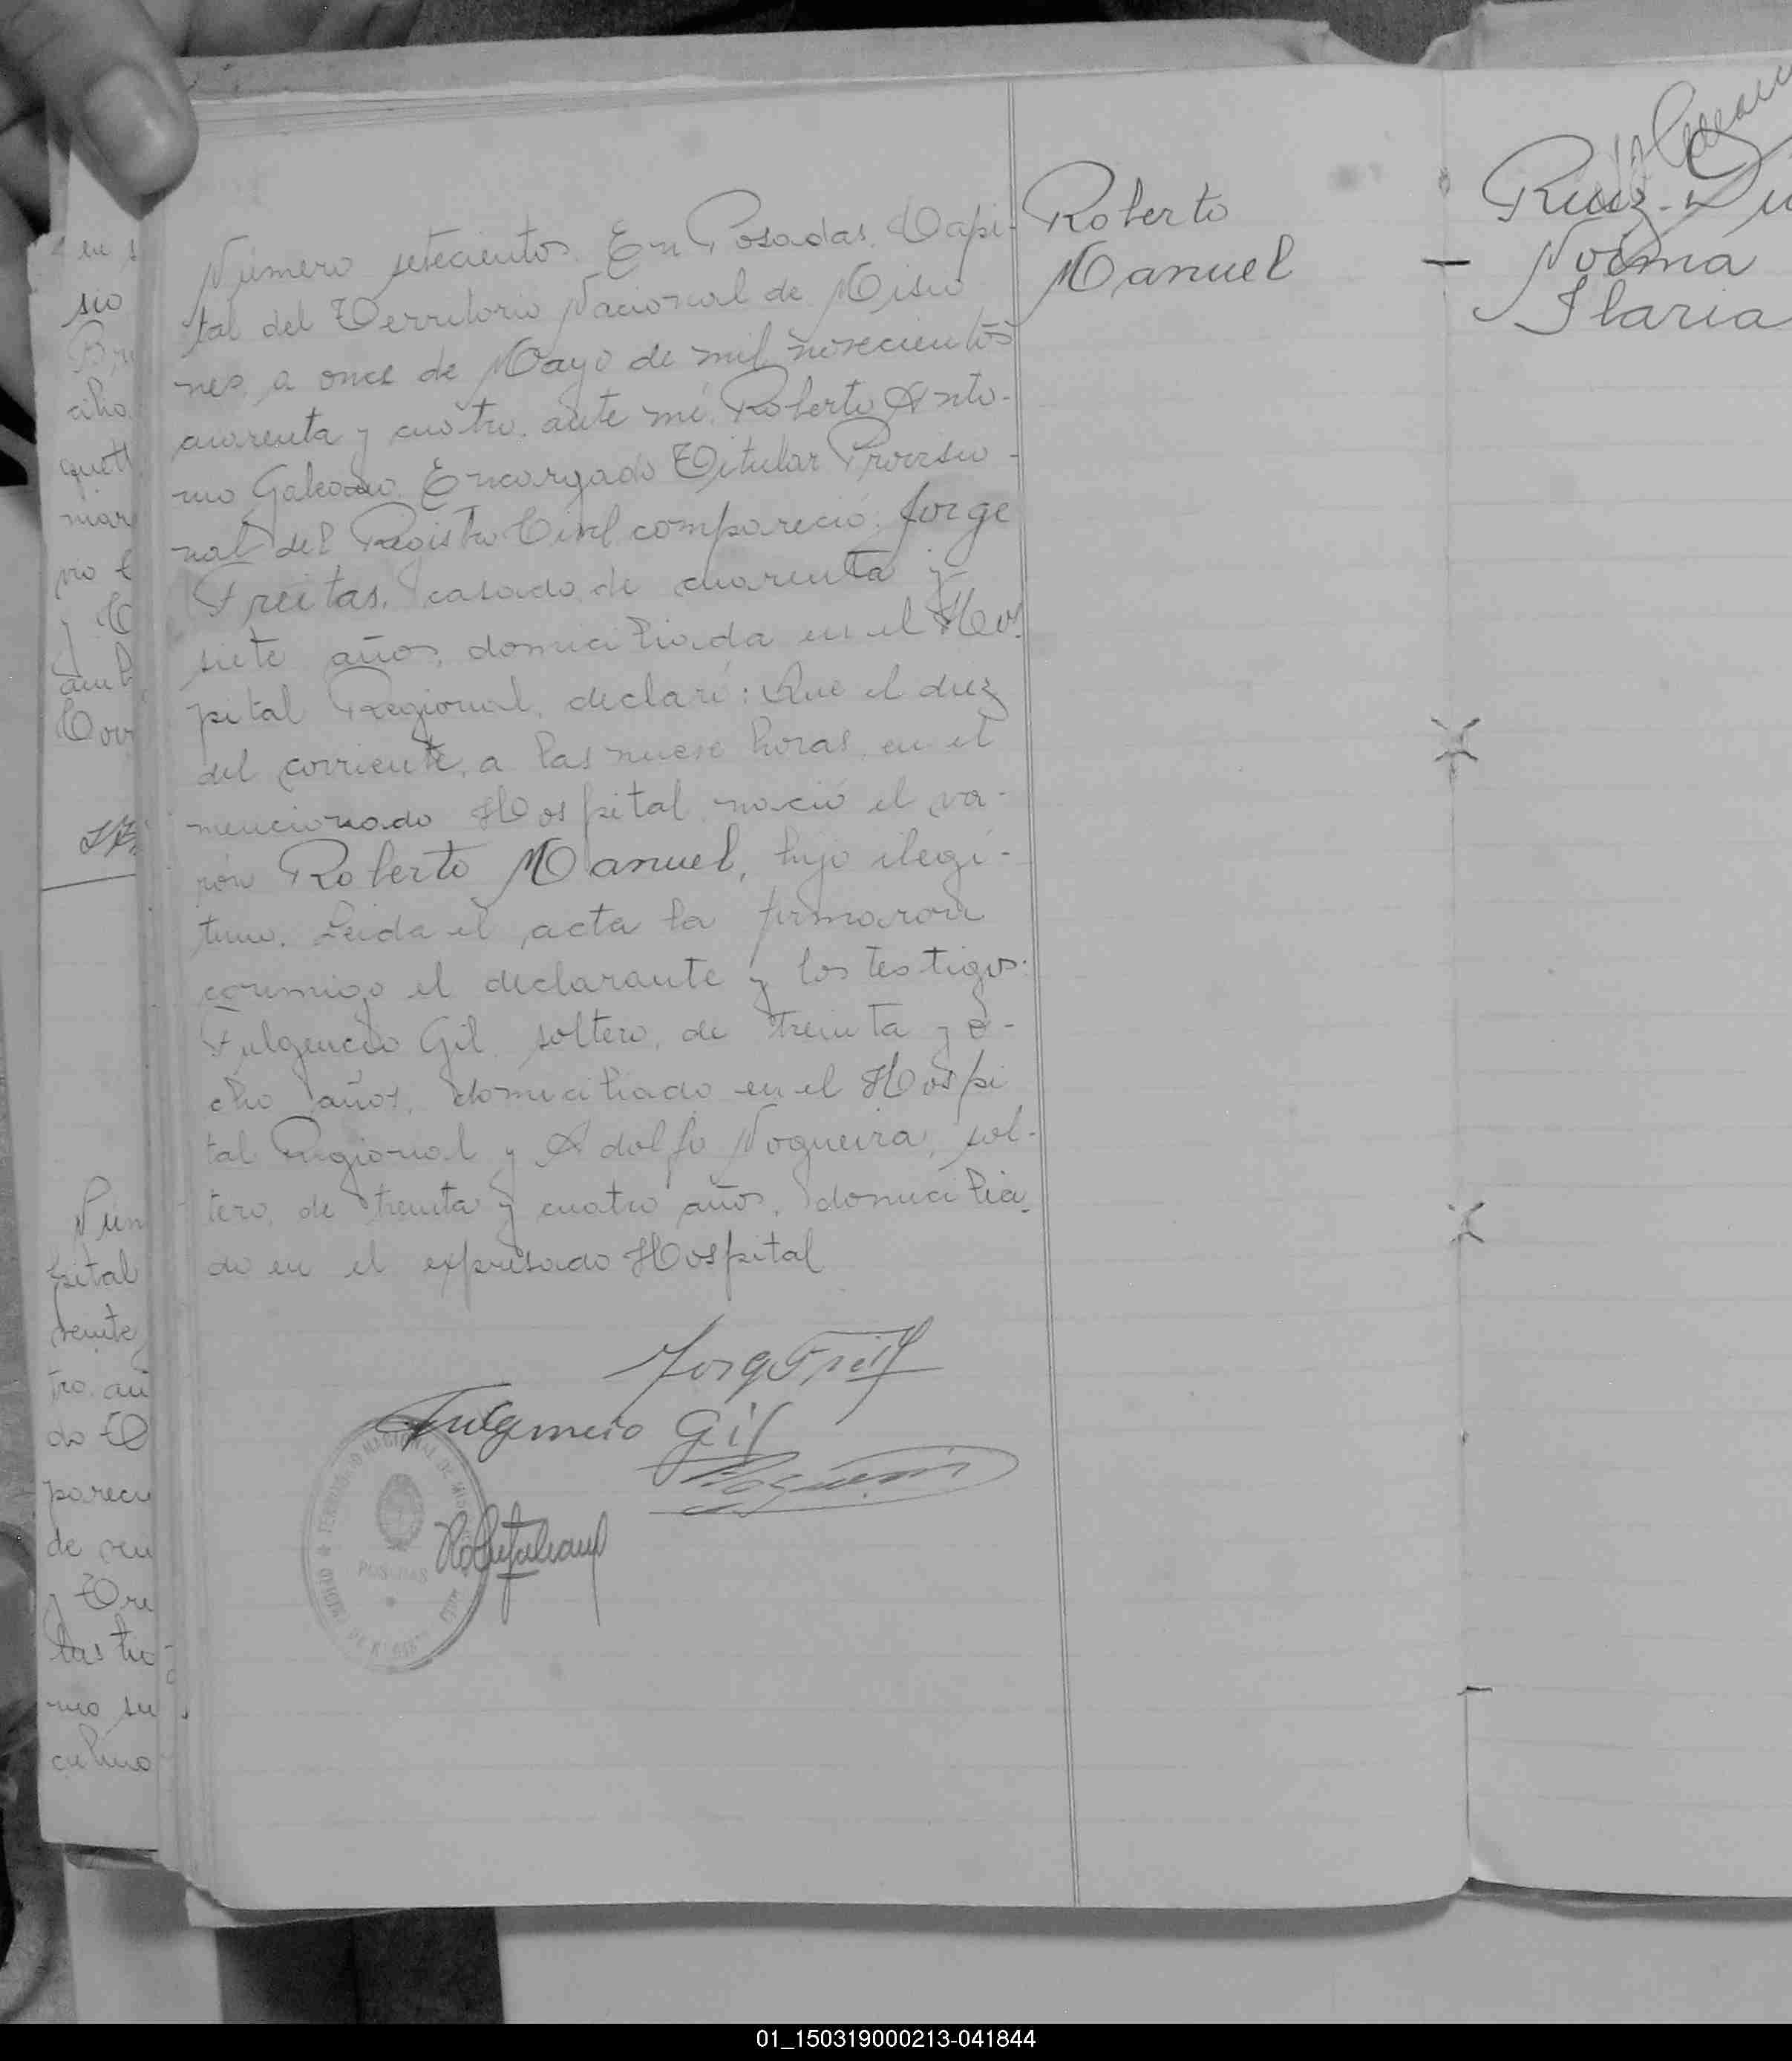 Número setecientos. En Posadas, Capi-
tal del Territorio Nacional de Misio
nes, a once de Mayo de mil novecientos
cuarenta y cuatro, ante mí, Roberto Anto-
nio Galeano Encargado Titular Proviso-
nal del Registro Civil compareció: Jorge
Freitas, casado, de cuarenta y
siete años, domiciliada en el Hos
pital Regional, declaró: Que el diez
del corriente, a las nueve horas, en el
mencionado Hospital, nació el va-
rón Roberto Manuel, hijo ilegí-
timo. Leida el acta la firmaron
conmigo el declarante y los testigos:
Fulgencio Gil, soltero, de treinta y o-
cho años, domiciliado en el Hospi
tal Regional y Adolfo Nogueira, sol-
tero, de treinta y cuatro años, domicilia
do en el expresado Hospital
Fulgencio Gil
TERRITORIO NACIONAL DE
POSADAS
Roberto
Manuel
Ruiz
Norma
Ilaria
en
sio
aho
pital
tro
de
01_150319000213-041844